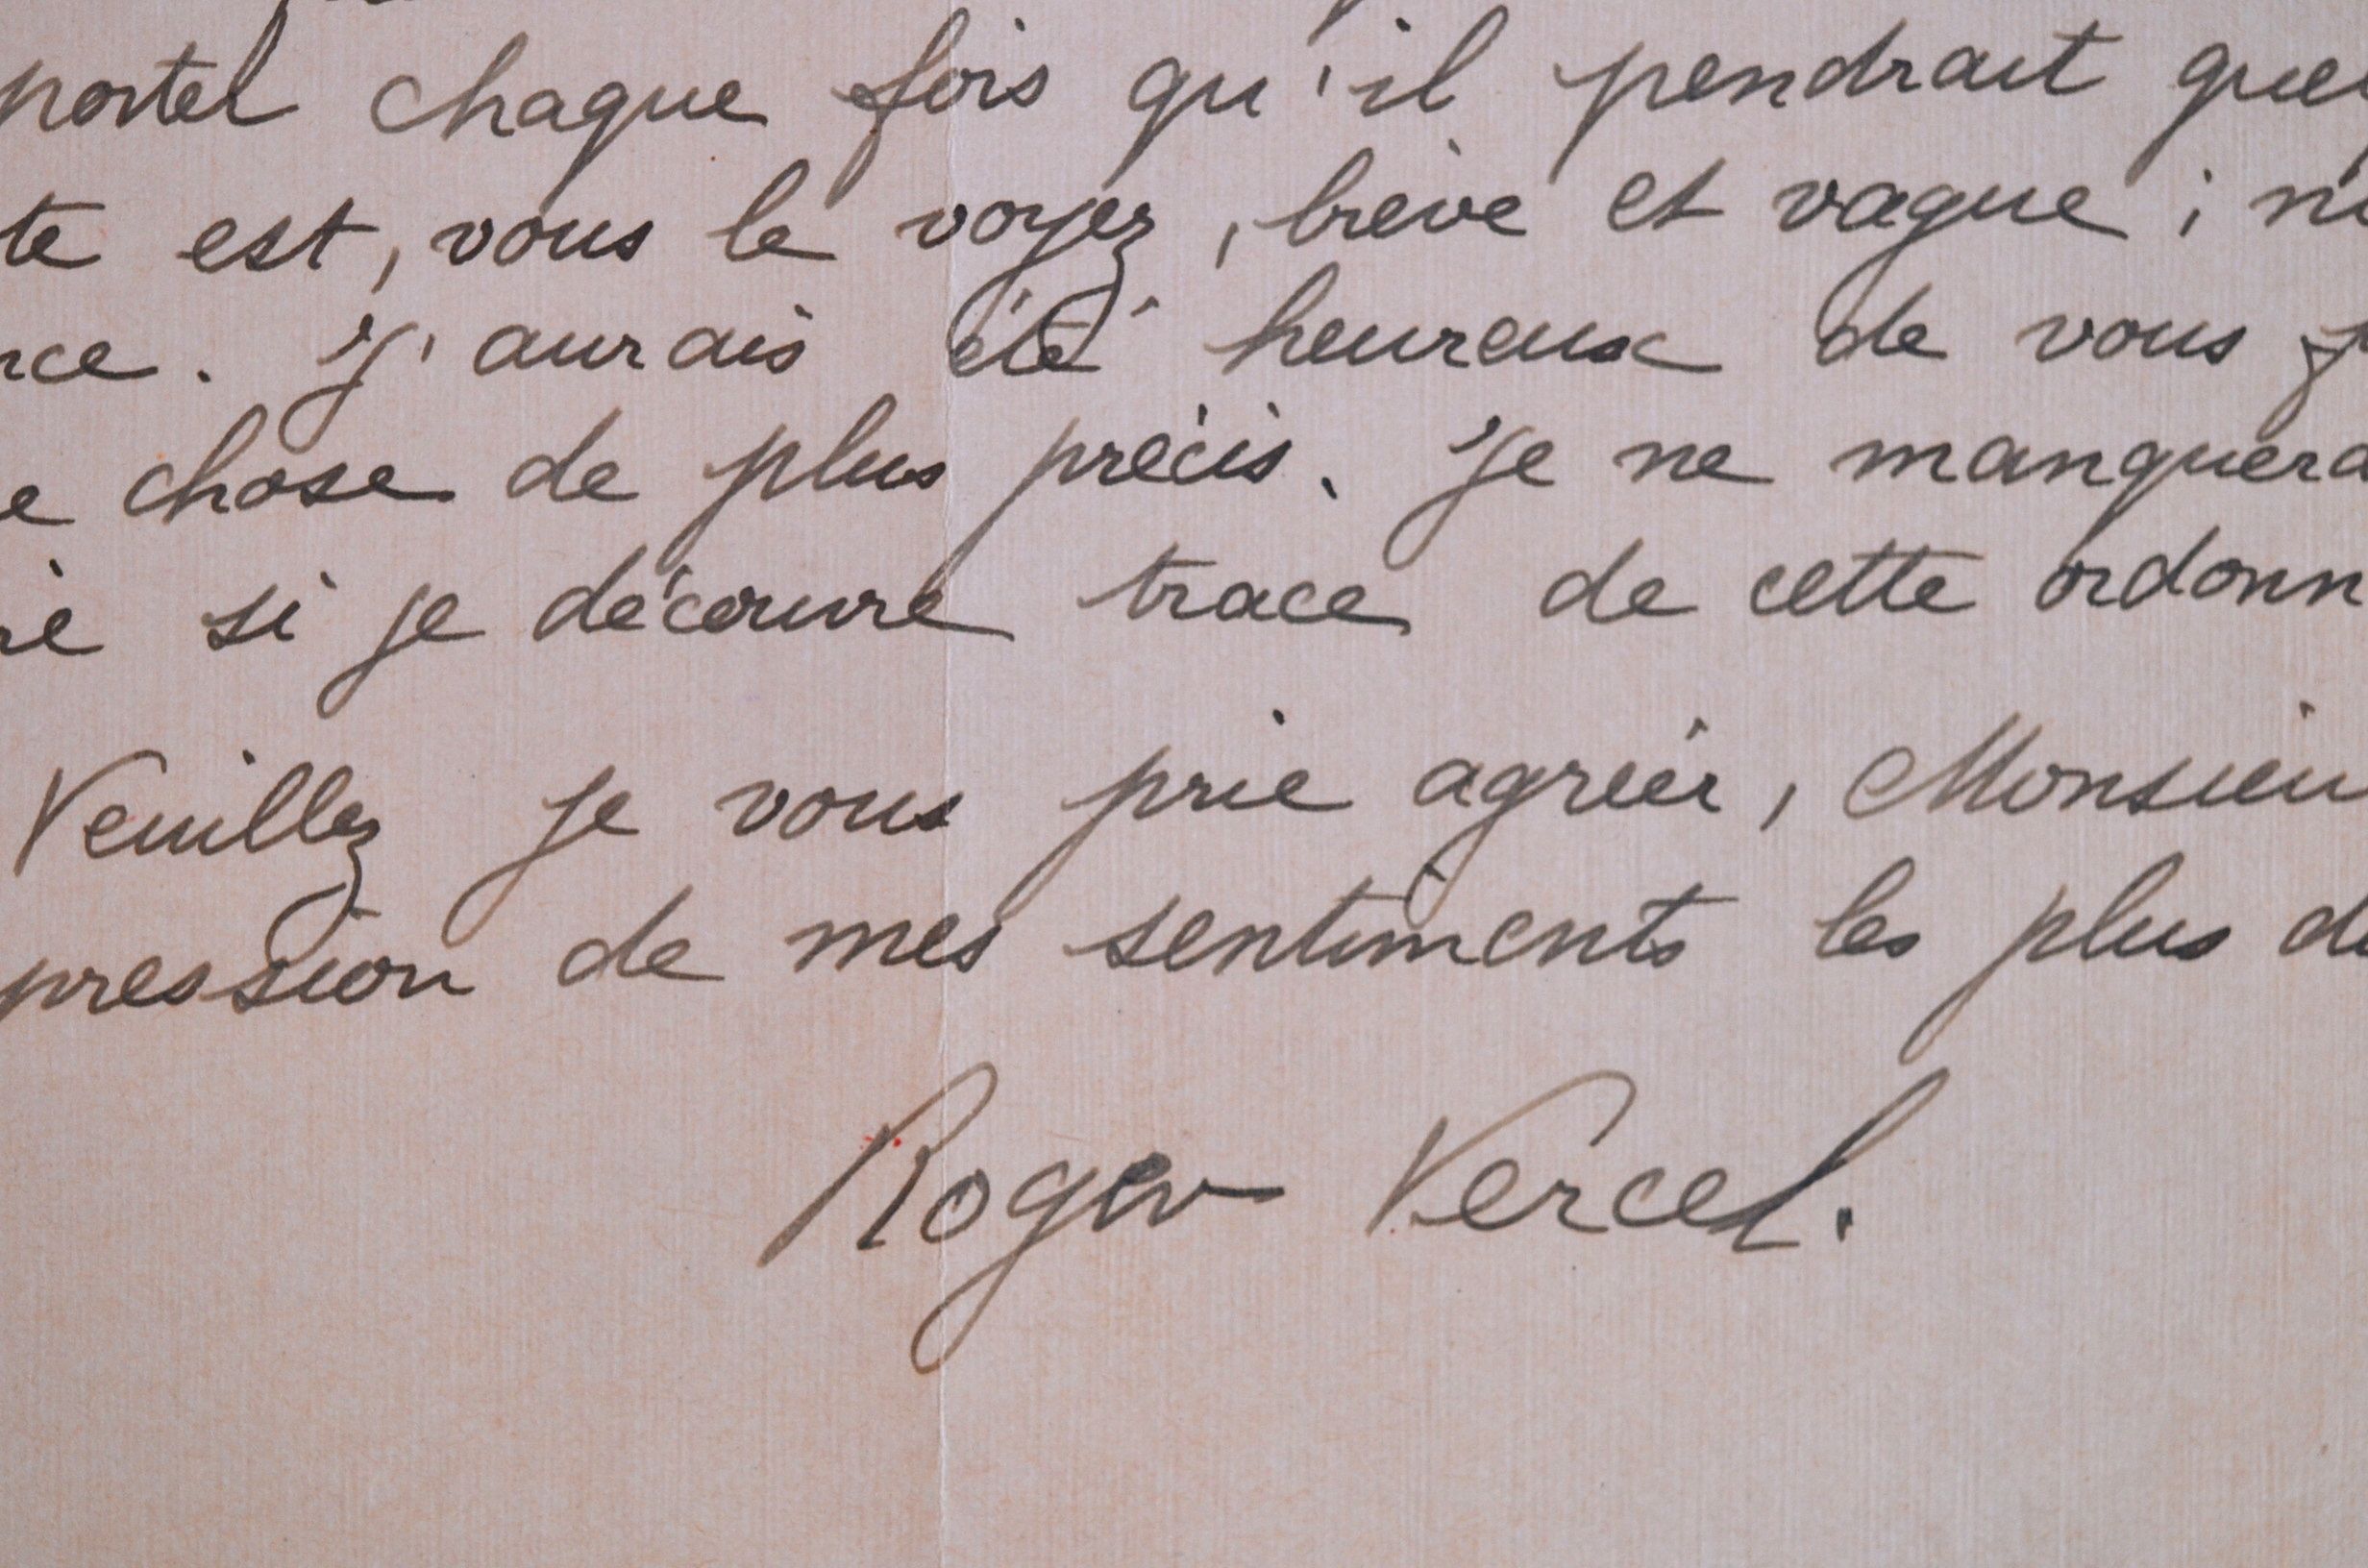 portel chaque fois qu'il pendrait quel
te est, vous le voyez, brève et vague ; n
nce. J'aurais été heureux de vous
e chose de plus précis. Je ne manquera
re si je découvre trace de cette ordonn
Veuillez je vous prie agréer, Monsieu
pression de mes sentiments les plus d
Roger Vercel.